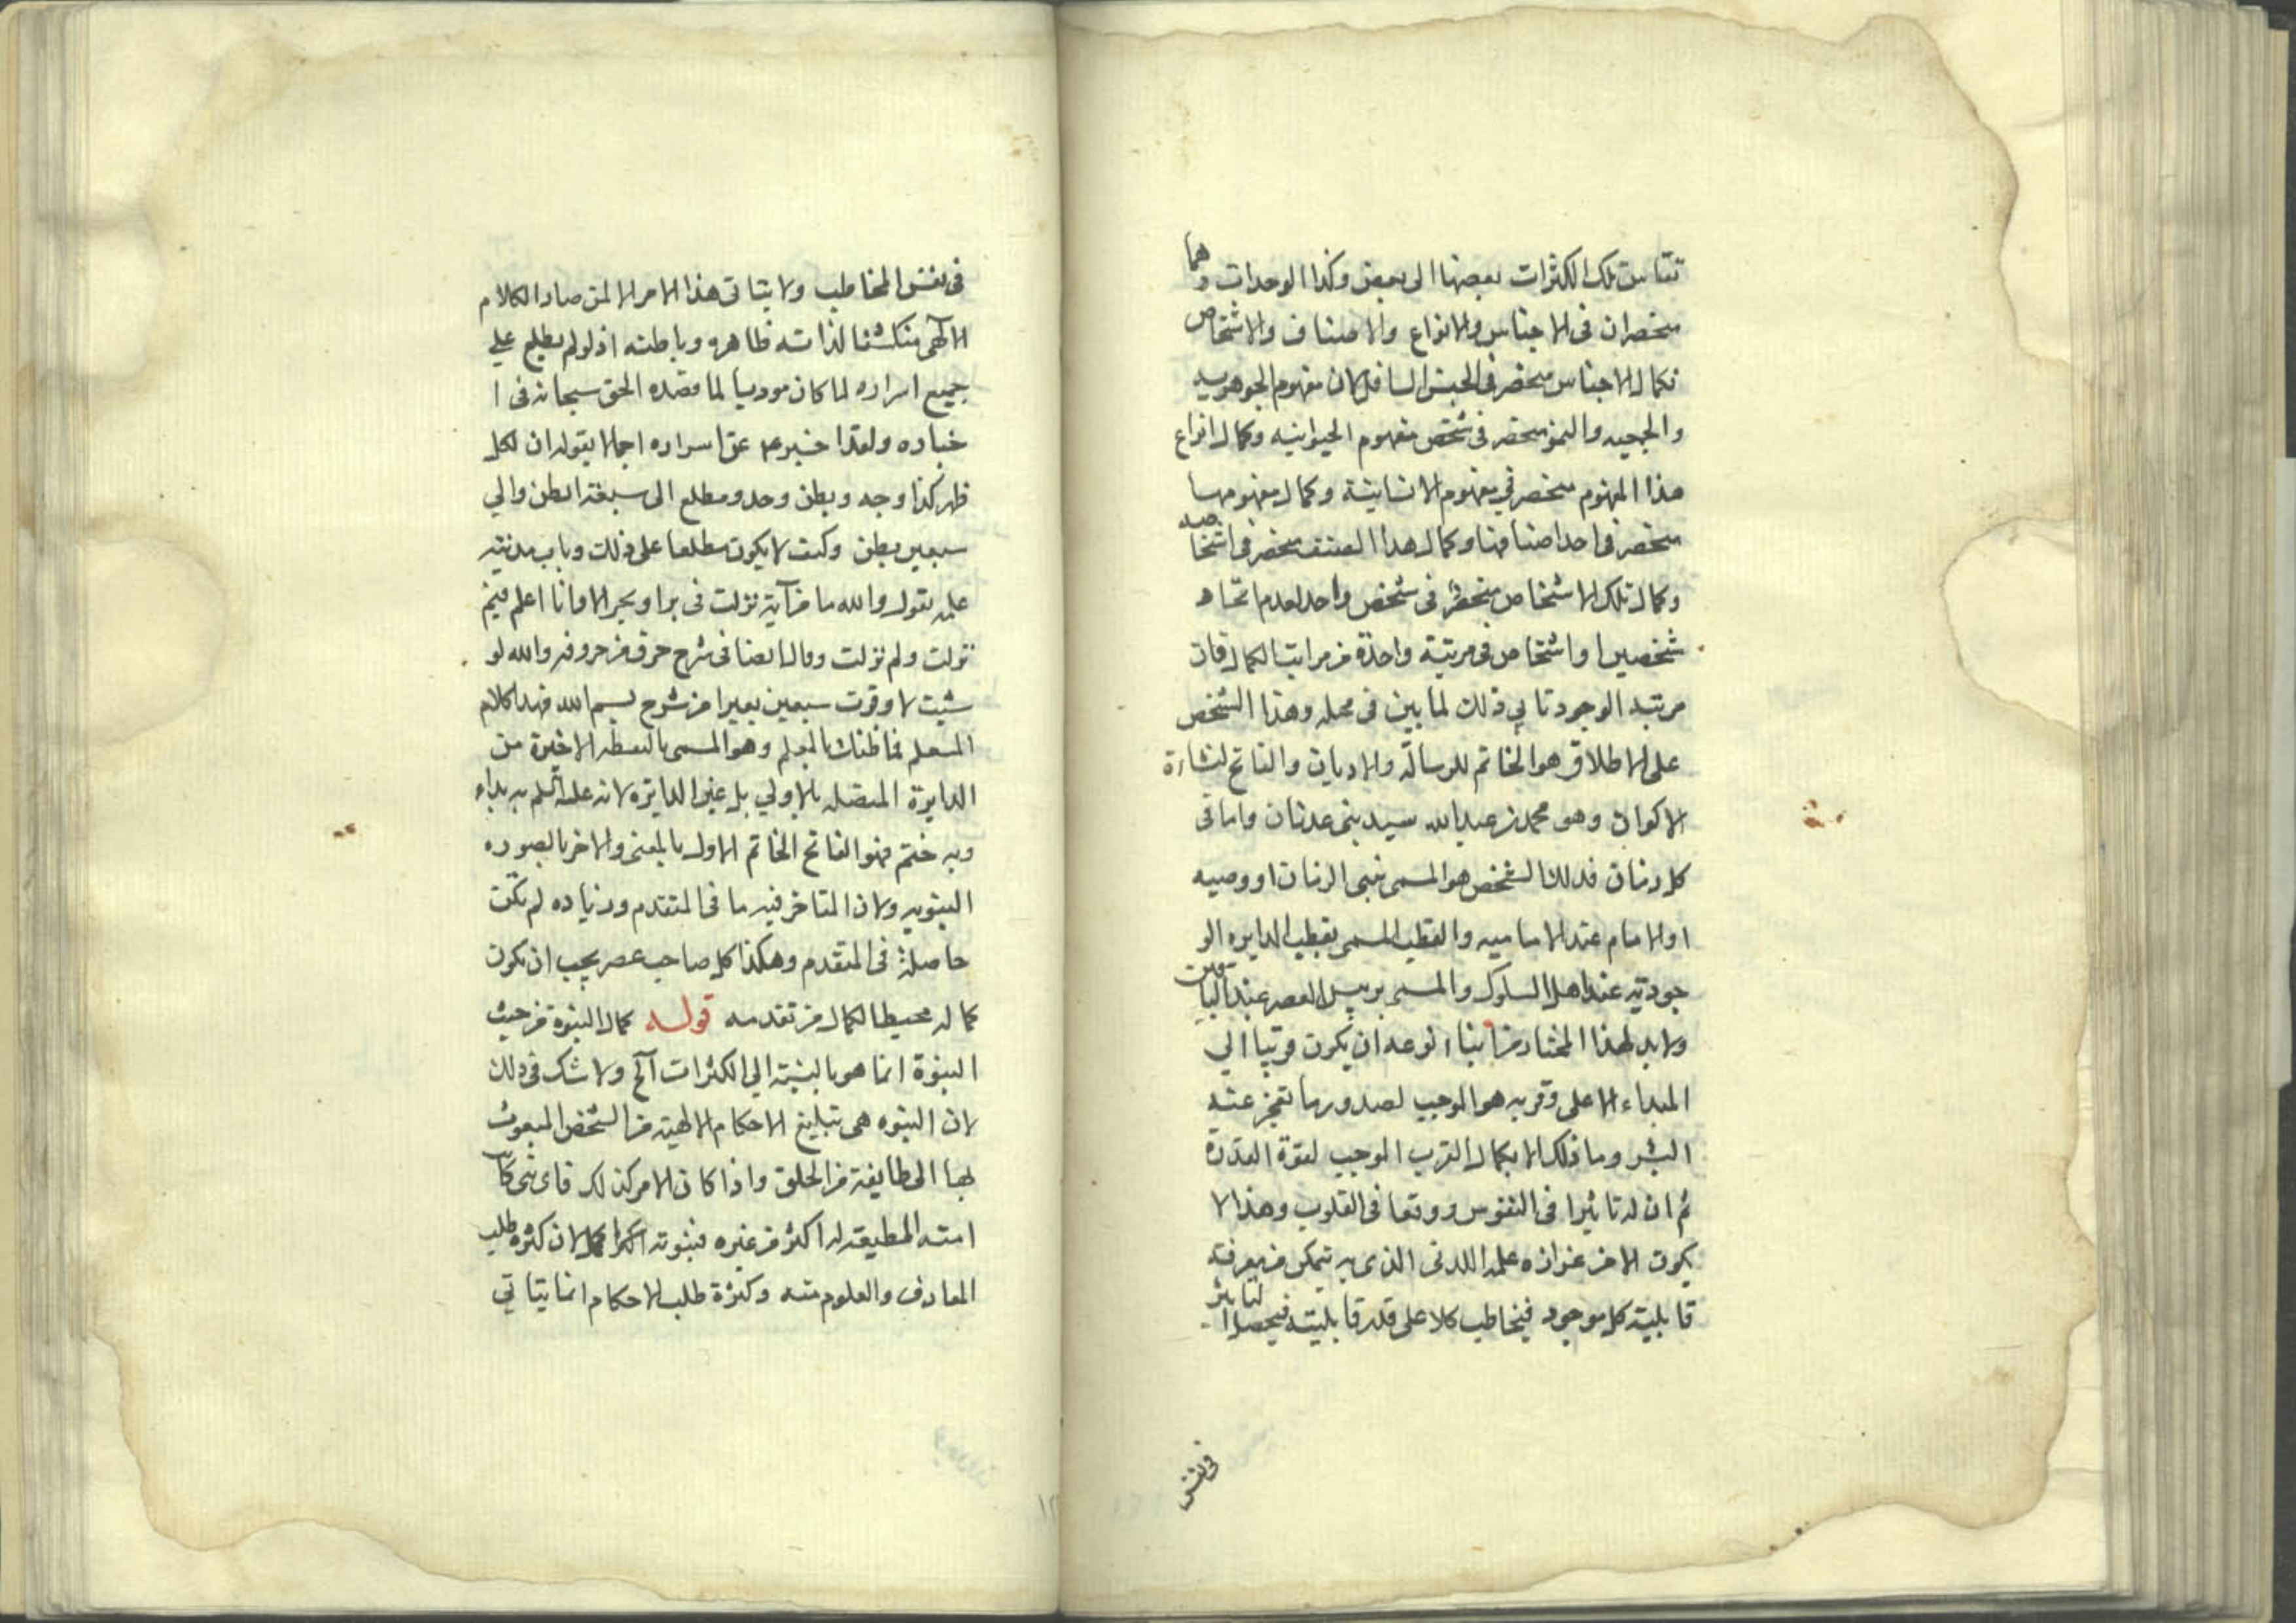 تلك الكثرات بعضها الى بعض وكذا الوحدات وهما
منحصران فى الاجناس والانواع والاصناف والاشخاص
فكمال الاجناس منحصر فى الجنس السافل كان مفهوم الجوهريه
والجسميه والنمو منحصر فى شخص مفهوم الحيوانيه وكمال انواع
هذا المفهوم منحصر في مفهوم الانسانية وكمال مفهومها
منحصر فى احد اصنافها وكمال هذا الصنف منحصر فى اشخاصه
وكمال تلك الاشخاص منحصر فى شخص واحد لعدم اتحاد
شخصين او اشخاص فى مرتبة واحدة من مراتب الكمال فان
مرتبة الوجود تابي ذلك لما بين فى محله وهذا الشخص
على الاطلاق هو الخاتم للرسالة والاديان والفاتح لنشاءة
الاكوان وهو محمد بن عبد الله سيد بنى عدنان واما فى
كل زمان فذلك الشخص هو المسمى بنبى الزمان او وصيه
او الامام عند الاماميه والقطب المسمى بقطب الدايره الو
جوديه عند اهل السلوك والمسمى برييس العصر عند
ولابد لهذا المختار من ابناء نوعه ان يكون قريبا الي
المبداء الاعلى وقربه هو الموجب لصدور ما تعجز عنه
البشر وما ذلك الا بكمال القرب الموجب لقوة القدرة
ثم ان له تاثيرا فى النفوس ووقعا فى القلوب وهذا لا
يكون الا من غزارة علمه اللدنى الذى به تمكن من معرفة
قابلية كل موجود فيخاطب كلا على قدر قابليته فيحصل التاثير
فى نفس
فى نفس المخاطب ولا يتاتى هذا الامر الا لمن صار الكلام
الالهى منكشفا لذاته ظاهره وباطنه اذ لو لم يطلع علي
جميع اسراره لما كان موديا لما قصده الحق سبحانه فى ا
خباره ولقد اخبر عن اسراره اجمالا بقوله ان لكل
ظهر كذا وجه وبطن وحد ومطلع الى سبعة ابطن والي
سبعين بطن وكيف لا يكون مطلعا على ذلك وباب مدينة
علمه يقول والله ما من آية نزلت فى بر او بحر الا وانا اعلم فيم
نزلت ولم نزلت وقال ايضا فى شرح حرف من حروفه والله لو
شيت لاوقرت سبعين بعيرا من شرح بسم الله فهذا كلام
المتعلم فما ظنك بالمعلم وهو المسمى بالنقطه الاخيرة من
الدايرة المتصله بالاولي بل عين الدايره لانه عليه السلم به بداء
وبه ختم فهو الفاتح الخاتم الاول بالمعنى والاخر بالصوره
النبويه ولان المتاخر فيه ما فى المتقدم وزياده لم تكن
حاصلة فى المتقدم وهكذا كل صاحب عصر يجب ان يكون
كماله محيطا لكمال من تقدمه قوله كمال النبوة من حيث
النبوة انما هو بالنسبة الي الكثرات آلخ ولا شك فى ذلك
لان النبوه هى تبليغ الاحكام الالهية من الشخص المبعوث
بها الى طايفة من الخلق واذا كان الامر كذلك فاى نبى كان
امته المطيعة له اكثر من غيره فنبوته اكمل لان كثرة طلب
المعارف والعلوم منه وكثرة طلب الاحكام انما يتاتي